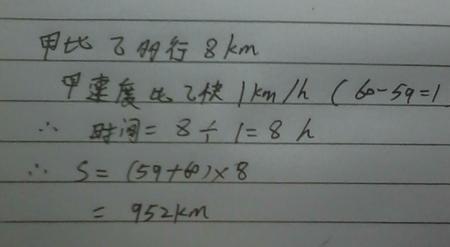 甲比乙多行8km
甲速度比乙快1km/h (60-59=1
∴ 时间=8÷1=8h
∴ S=(59+60)×8
=952km